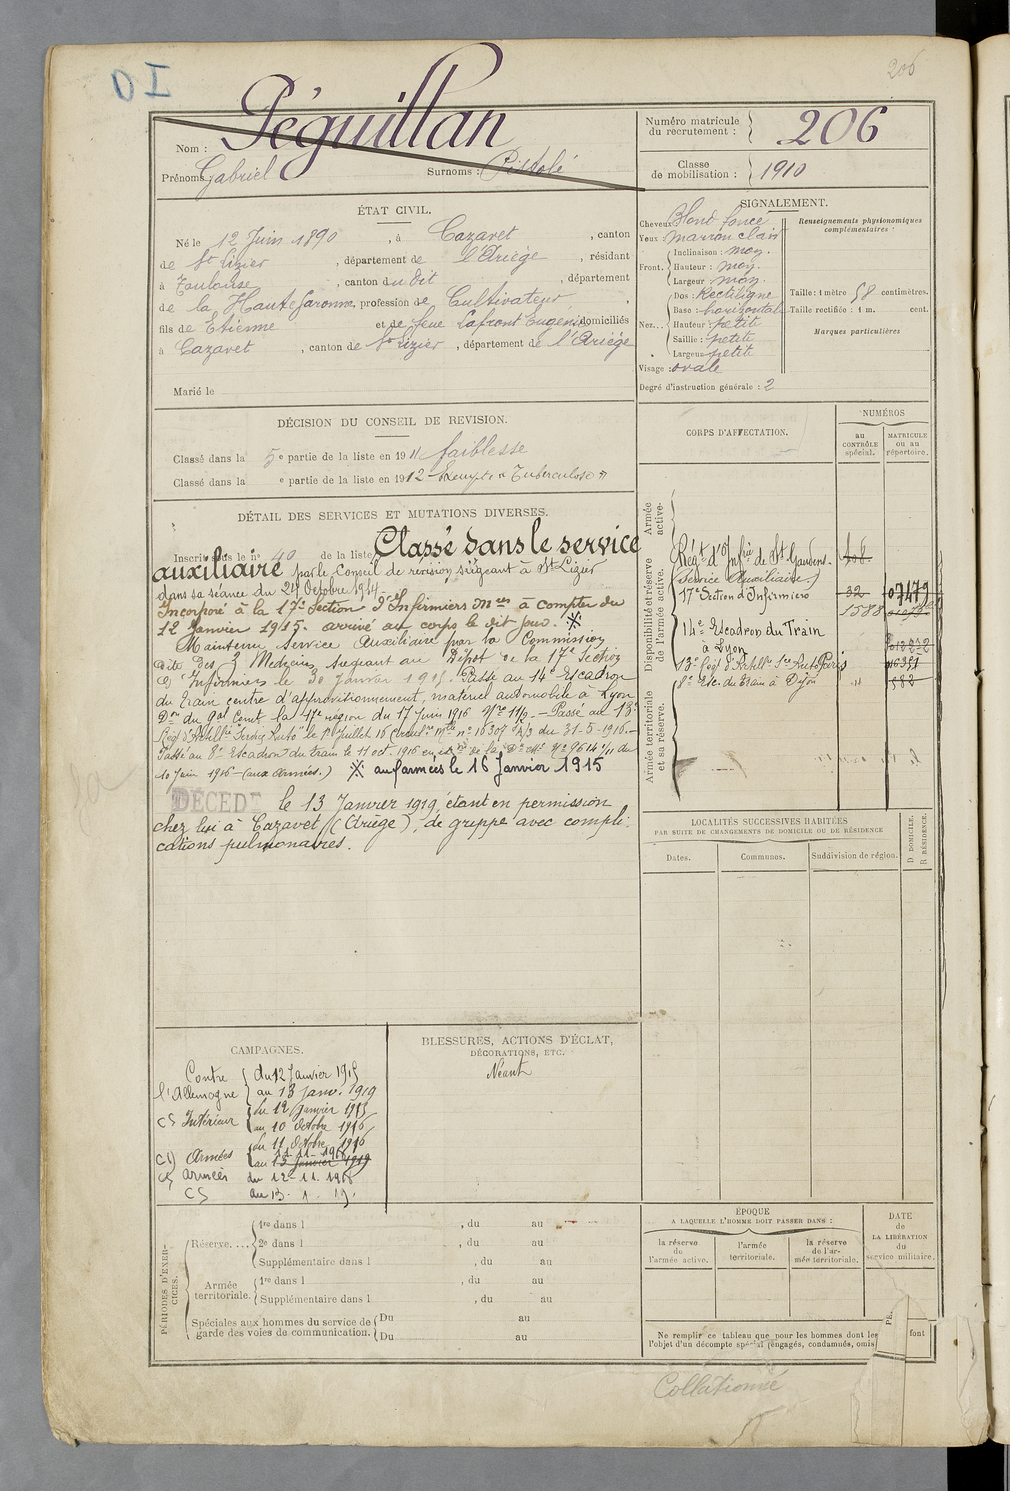 DI
206
Péguillan
Nom :
Prénoms Gabriel
Surnoms : Pistolé
Numéro matricule du recrutement : 206
Classe de mobilisation : 1910
ÉTAT CIVIL.
Né le 12 Juin 1890, à Cazavet, canton
de St Lizier, département de l'Ariège, résidant
à Toulouse, canton du dit, département
de la Haute Garonne, profession de Cultivateur,
fils de Etienne et de feue Lafront Eugénie domiciliés
à Cazavet, canton de St Lizier, département de l'Ariége
Marié le
SIGNALEMENT.
Cheveux Blond foncé
Yeux : marron clair
Front. Inclinaison : moy.
Hauteur : moy.
Largeur moy.
Nez... Dos : Rectiligne
Base : horizontale
Hauteur : petit
Saillie : petite
Largeur petit
Visage : ovale
Degré d'instruction générale : 2
Renseignements physionomiques complémentaires :
Taille : 1 mètre 58 centimètres.
Taille rectifiée : 1 m. cent.
Marques particulières
DÉCISION DU CONSEIL DE REVISION.
Classé dans la 5e partie de la liste en 1911 faiblesse
Classé dans la e partie de la liste en 1912 Exempté « Tuberculose »
DÉTAIL DES SERVICES ET MUTATIONS DIVERSES.
Inscrit sous le n° 40 de la liste Classé dans le service
auxiliaire par le Conseil de révision siégeant à St Lizier
dans sa séance du 24 Octobre 1914.
Incorporé à la 17e Section d'Infirmiers Mres à compter du
12 Janvier 1915. arrivé au corps le dit jour. ※
Maintenu Service Auxiliaire par la Commission
dite des 3 Medecins siegeant au Dépot de la 17e Section
d'Infirmiers le 30 Janvier 1915. Passé au 14e Escadron
du Train centre d'approvisionnement, matériel automobile à Lyon
Don du Gal Comt la 17e région du 17 Juin 1916 — Passé au 13e
Passé au 8e Escadron du train le 11 oct. 1916
10 Juin 1916 - (aux Armées.) ※ aux armées le 16 Janvier 1915
DÉCÉDÉ le 13 Janvier 1919, étant en permission
chez lui à Cazavet (Ariège), de grippe avec compli-
cations pulmonaires.
CORPS D'AFFECTATION.
NUMÉROS
au CONTRÔLE spécial.
MATRICULE ou au répertoire.
Armée active.
Disponibilité et réserve de l'armée active.
Armée territoriale et sa réserve.
Régt d'Infrie de St Gaudens.
(Service Auxiliaire)
17e Section d'Infirmiers 32 07479
1588
14e Escadron du Train
à Lyon
13e Régt d'Artillie Sce Auto Paris
8e Esc. du Train à Dijon " 582
LOCALITÉS SUCCESSIVES HABITÉES
PAR SUITE DE CHANGEMENTS DE DOMICILE OU DE RÉSIDENCE
Dates.
Communes.
Subdivision de région.
D DOMICILE.
R RÉSIDENCE.
CAMPAGNES.
Contre du 12 Janvier 1915
l'Allemagne au 13 janv. 1919
CS Intérieur du 12 Janvier 1915
au 10 Octobre 1916
CD Armées du 11 Octobre 1916
11-11-1918
au 13 Janvier 1919
CS armées du 12-11. 1918
CS au 13. 1. 19.
BLESSURES, ACTIONS D'ÉCLAT,
DÉCORATIONS, ETC.
Néant
PÉRIODES D'EXERCICES.
Réserve.... 1re dans l , du au
2e dans l , du au
Supplémentaire dans l , du au
Armée territoriale. 1re dans l , du au
Supplémentaire dans l , du au
Spéciales aux hommes du service de garde des voies de communication. Du au
Du au
ÉPOQUE
A LAQUELLE L'HOMME DOIT PASSER DANS :
la réserve de l'armée active.
l'armée territoriale.
la réserve de l'armée territoriale.
DATE de LA LIBÉRATION du service militaire.
Ne remplir ce tableau que pour les hommes dont les
l'objet d'un décompte spécial (engagés, condamnés, omis
font
Collationné